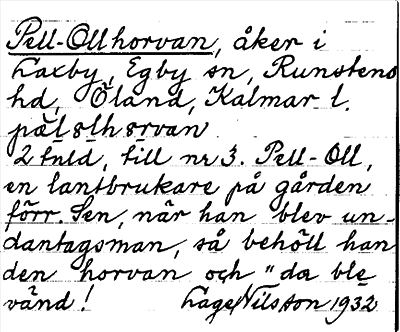 Pell-Ollhorvan, åker i
Laxby, Egby sn, Runstens
hd, Öland, Kalmar l.
pälålhårvan
2 tnld, till nr 3. Pell-Oll,
en lantbrukare på gården
förr. Sen, när han blev un-
dantagsman, så behöll han
den horvan och "da ble
vänd! Lage Nilsson 1932